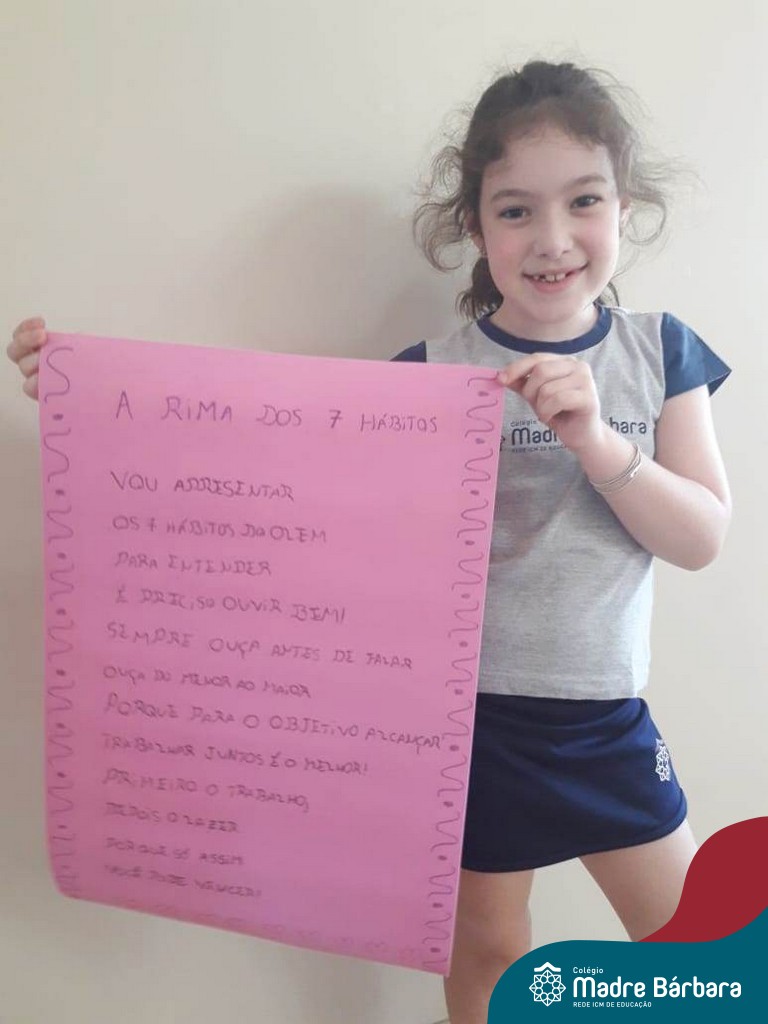 A RIMA DOS 7 HÁBITOS
VOU APRESENTAR
OS 7 HÁBITOS DO OLEM
PARA ENTENDER
É PRECISO OUVIR BEM!
SEMPRE OUÇA ANTES DE FALAR
OUÇA DO MENOR AO MAIOR
PORQUE PARA O OBJETIVO ALCANÇAR
TRABALHAR JUNTOS É O MELHOR!
PRIMEIRO O TRABALHO,
DEPOIS O LAZER
PORQUE SÓ ASSIM
VOCÊ PODE VENCER!
Colégio
Madre Bárbara
REDE ICM DE EDUCAÇÃO
Colégio
Madre Bárbara
REDE ICM DE EDUCAÇÃO